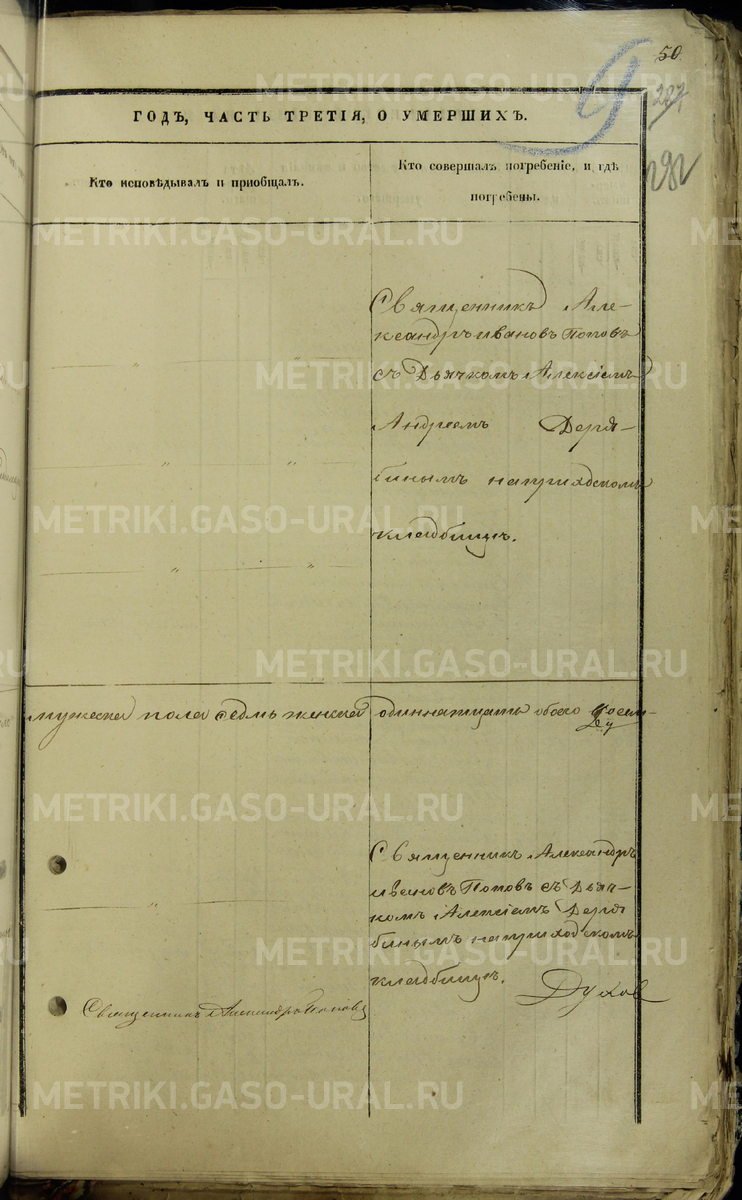 50
287
292
ГОДЪ, ЧАСТЬ ТРЕТІЯ, О УМЕРШИХЪ.
Кто исповѣдывалъ и пріобщалъ.
Кто совершалъ погребеніе, и гдѣ
погребены.
Священникъ Але-
ксандръ Ивановъ Поповъ
съ Дьячкомъ Алексіемъ
Андреемъ Деря-
бинымъ на приходскомъ
кладбищѣ.
мужеска пола седмь женска одиннатцать обоего
Священникъ Александръ
Ивановъ Поповъ съ Дьяч-
комъ Алексіемъ Деря
бинымъ на приходскомъ
кладбищѣ.
Духов
Священникъ Александръ Поповъ
METRIKI.GASO-URAL.RU